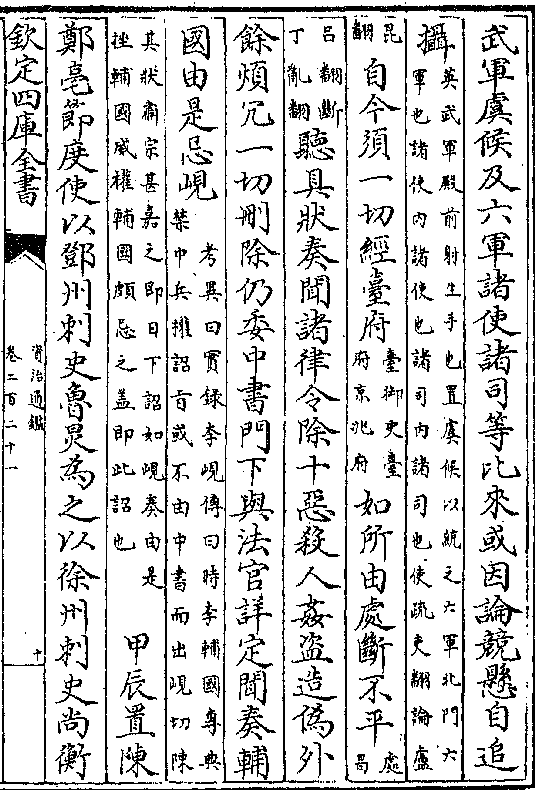 武軍虞候及六軍諸使諸司等比來或因論競懸自追
攝
英武軍殿前射生手也置虞候以統之六軍北門六
軍也諸使内諸使也諸司内諸司也使疏吏翻論盧
昆
翻
自今須一切經臺府
臺御史臺
府京兆府
如所由處斷不平
處
昌
吕翻斷
丁亂翻
聽具狀奏聞諸律令除十惡殺人姦盜造偽外
餘煩冗一切刪除仍委中書門下與法官詳定聞奏輔
國由是忌峴
考異曰實録李峴傳曰時李輔國專典
禁中兵權詔旨或不由中書而出峴切陳
其狀肅宗甚嘉之即日下詔如峴奏由是
挫輔國威權輔國頗忌之蓋即此詔也
甲辰置陳
鄭亳節度使以鄧州刺史魯炅為之以徐州刺史尚衡
欽定四庫全書
資治通鑑
卷二百二十一
十